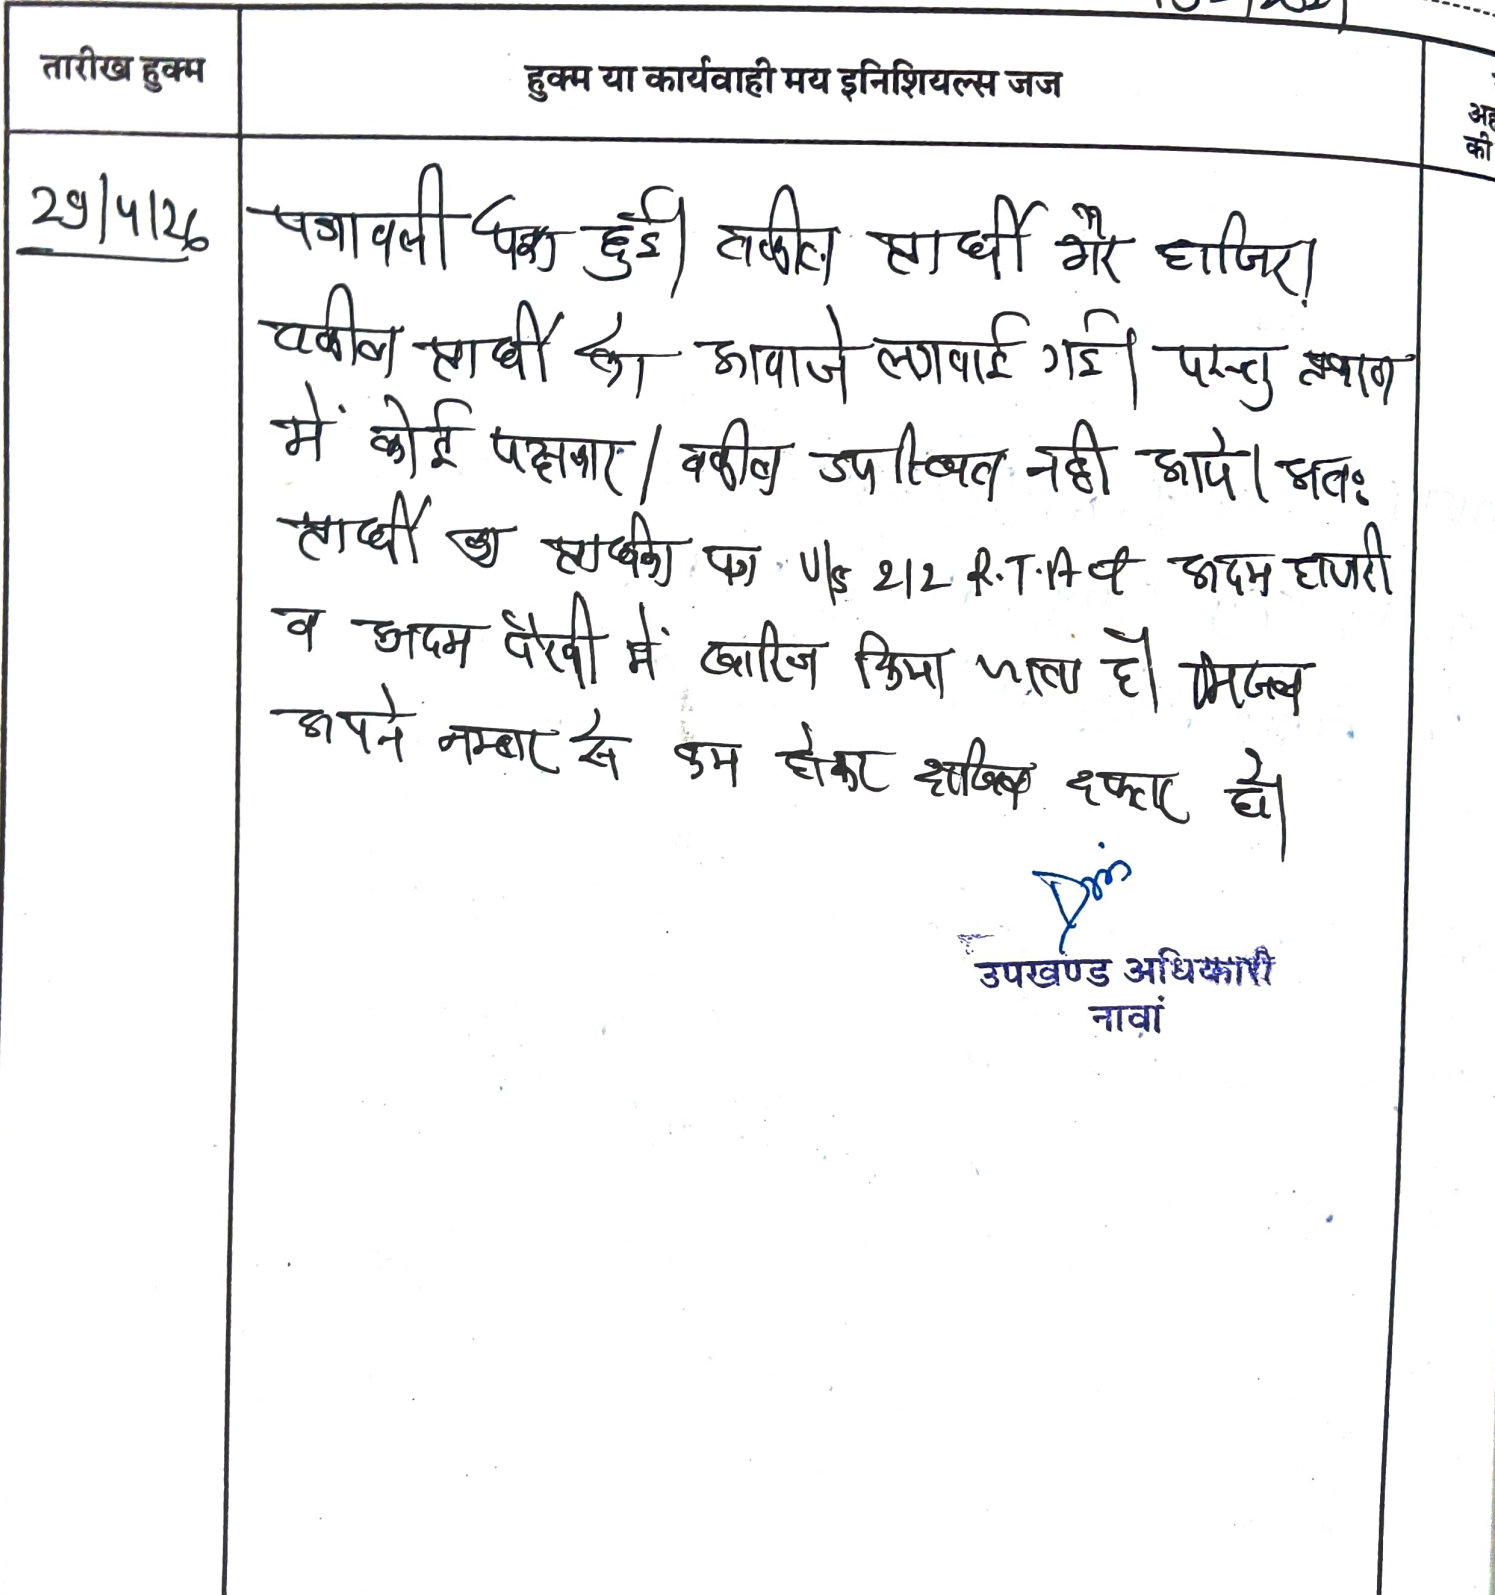 तारीख हुक्म
हुक्म या कार्यवाही मय इनिशियल्स जज
अह
की
29/4/26
पत्रावली पेश हुई। वकील प्रार्थी गैर हाजिर।
वकील प्रार्थी को आवाजे लगवाई गई। परन्तु
में कोई पक्षकार / वकील उपस्थित नही आये। अतः
प्रार्थी का प्रार्थना पत्र U/s 212 R.T.A व अदम हाजरी
व अदम पैरवी में खारिज किया जाता है।
अपने नम्बर से कम होकर दाखिल दफ्तर हो।
उपखण्ड अधिकारी
नावां